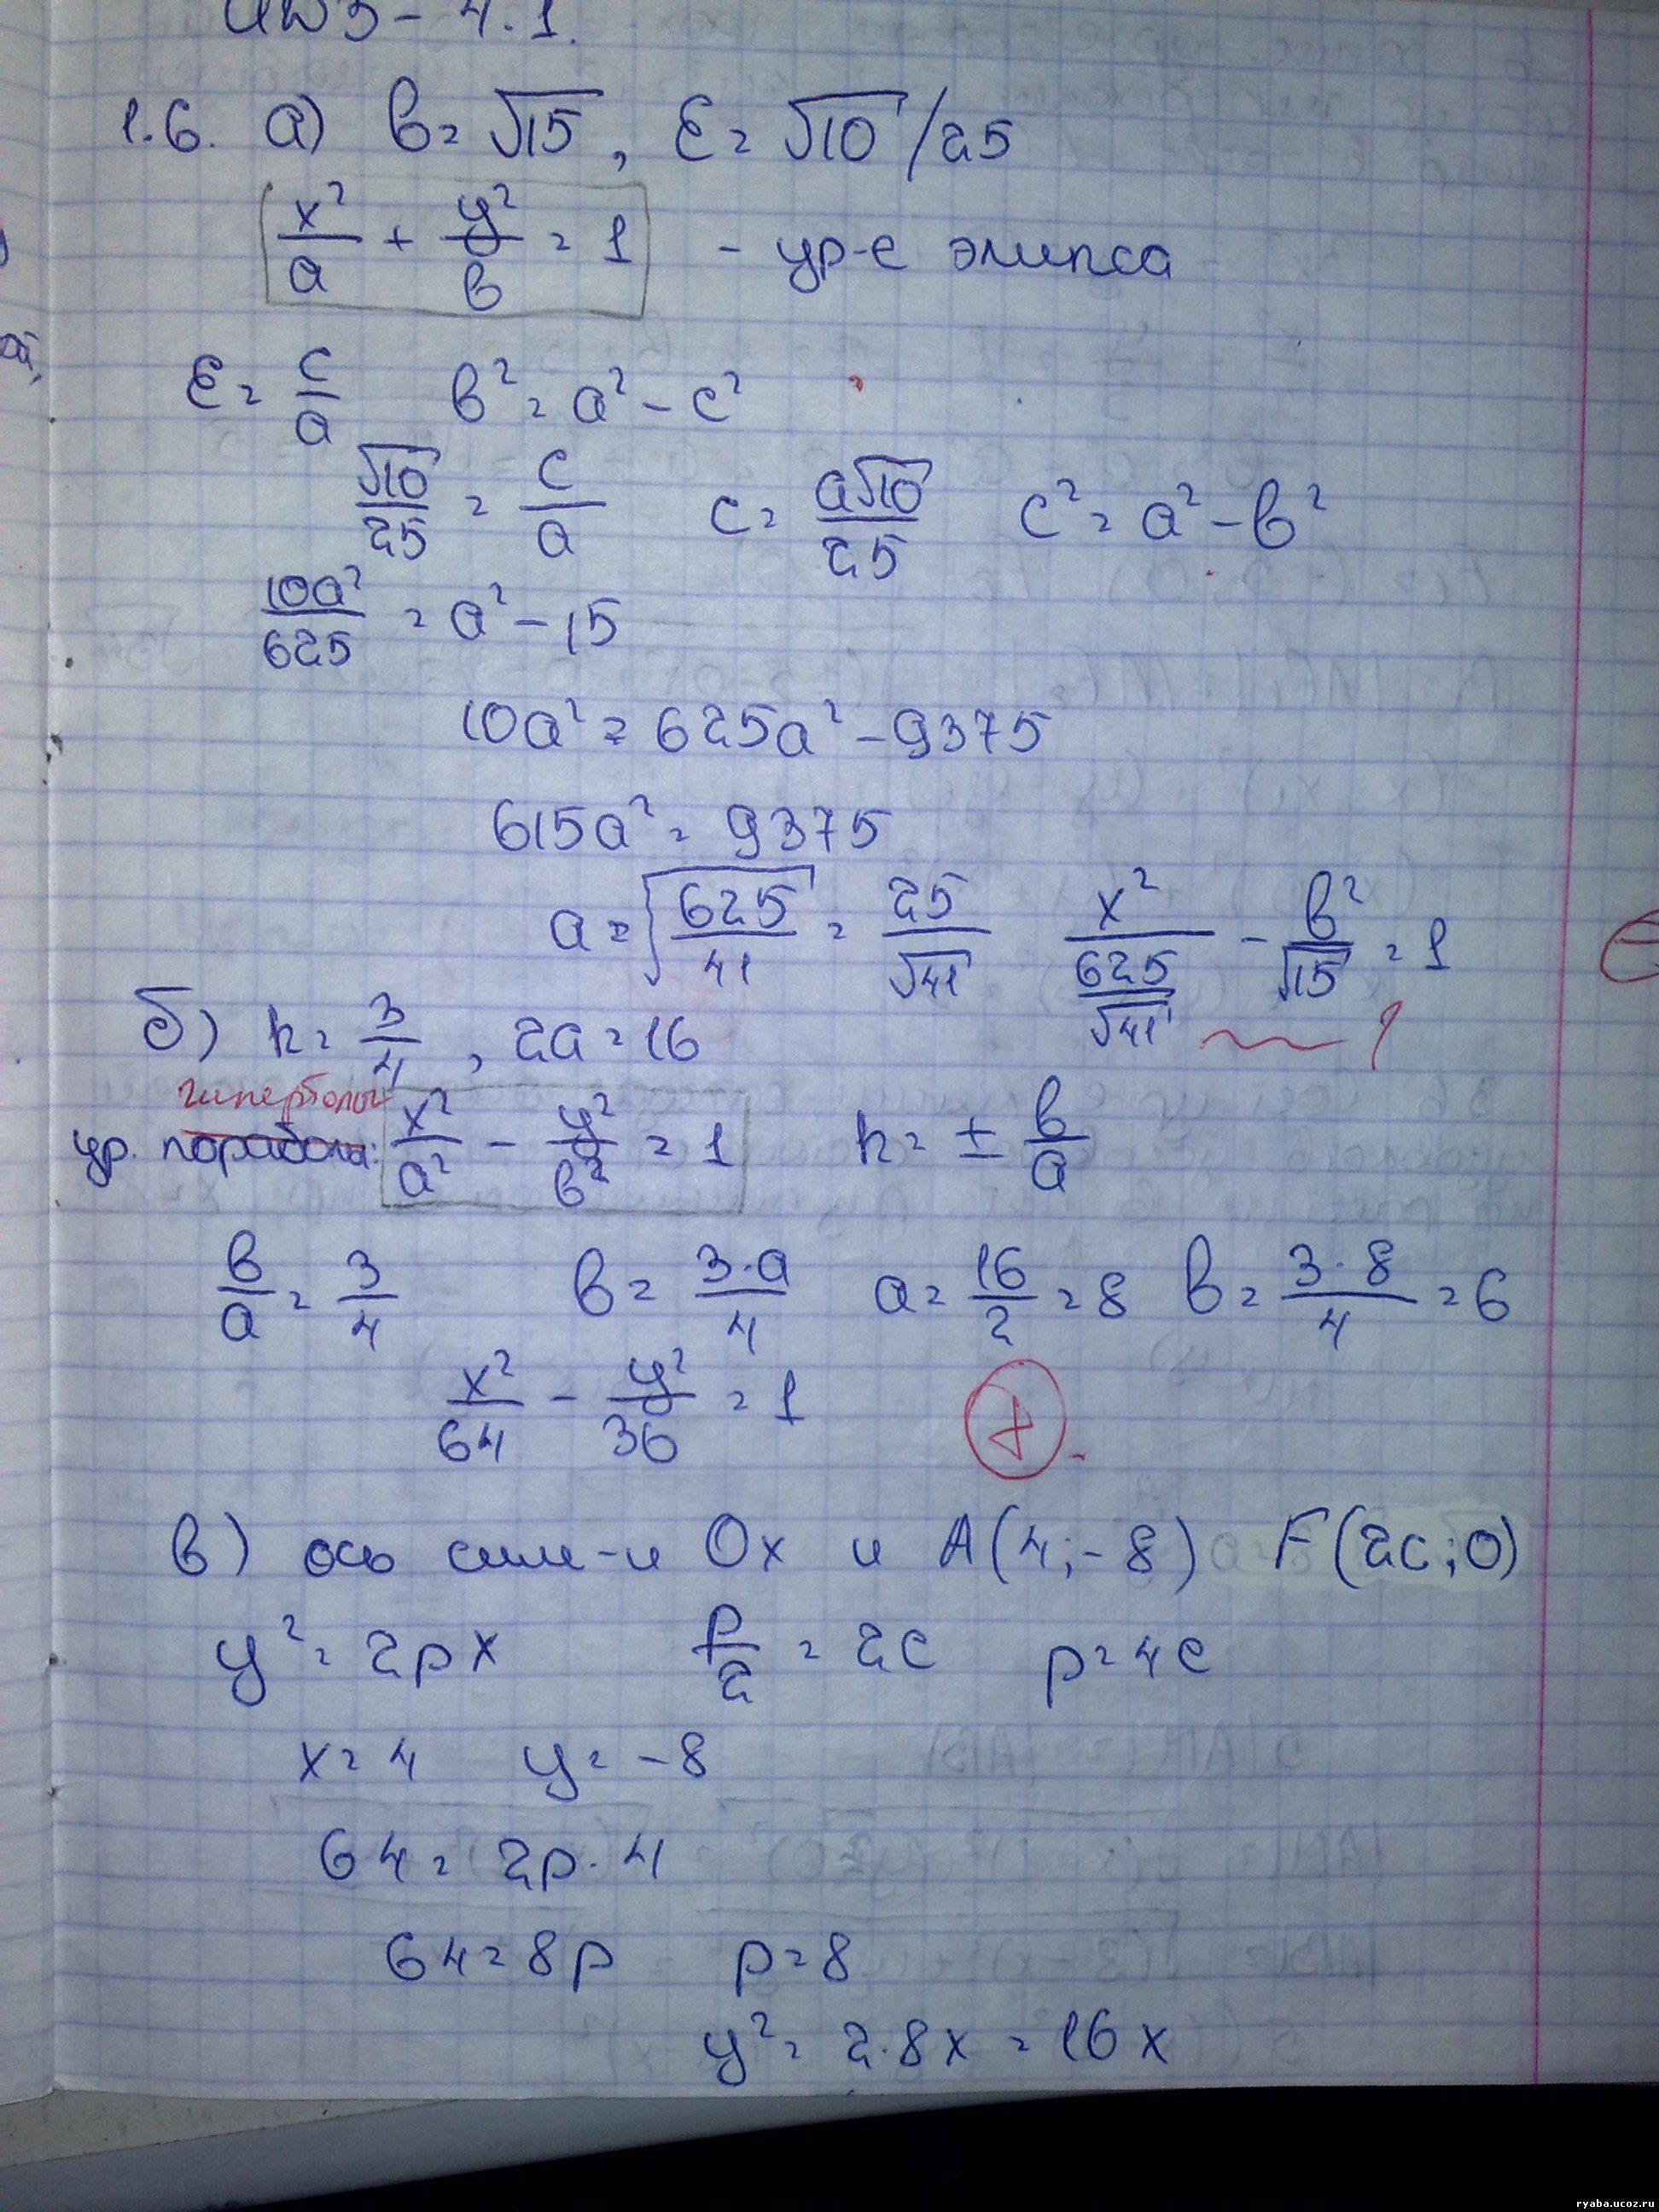 ИДЗ - 4.1.
1.6. а) в = √15, ε = √10/25
x²/a + y²/в = 1 - ур-е элипса
ε = c/a в² = a² - c²
√10/25 = c/a c = a√10/25 c² = a² - в²
10a²/625 = a² - 15
10a² = 625a² - 9375
615a² = 9375
a = √(625/41) = 25/√41 x²/(625/√41) - в²/√15 = 1
б) k = 3/4, 2a = 16
гиперболы
ур. параболы: x²/a² - y²/в² = 1 k = ± в/a
в/a = 3/4 в = 3·a/4 a = 16/2 = 8 в = 3·8/4 = 6
x²/64 - y²/36 = 1 +
в) ось сим-и Ox и A(4;-8) F(2c;0)
y² = 2px p/2 = 2c p = 4c
x = 4 y = -8
64 = 2p·4
64 = 8p p = 8
y² = 2·8x = 16x
ryaba.ucoz.ru